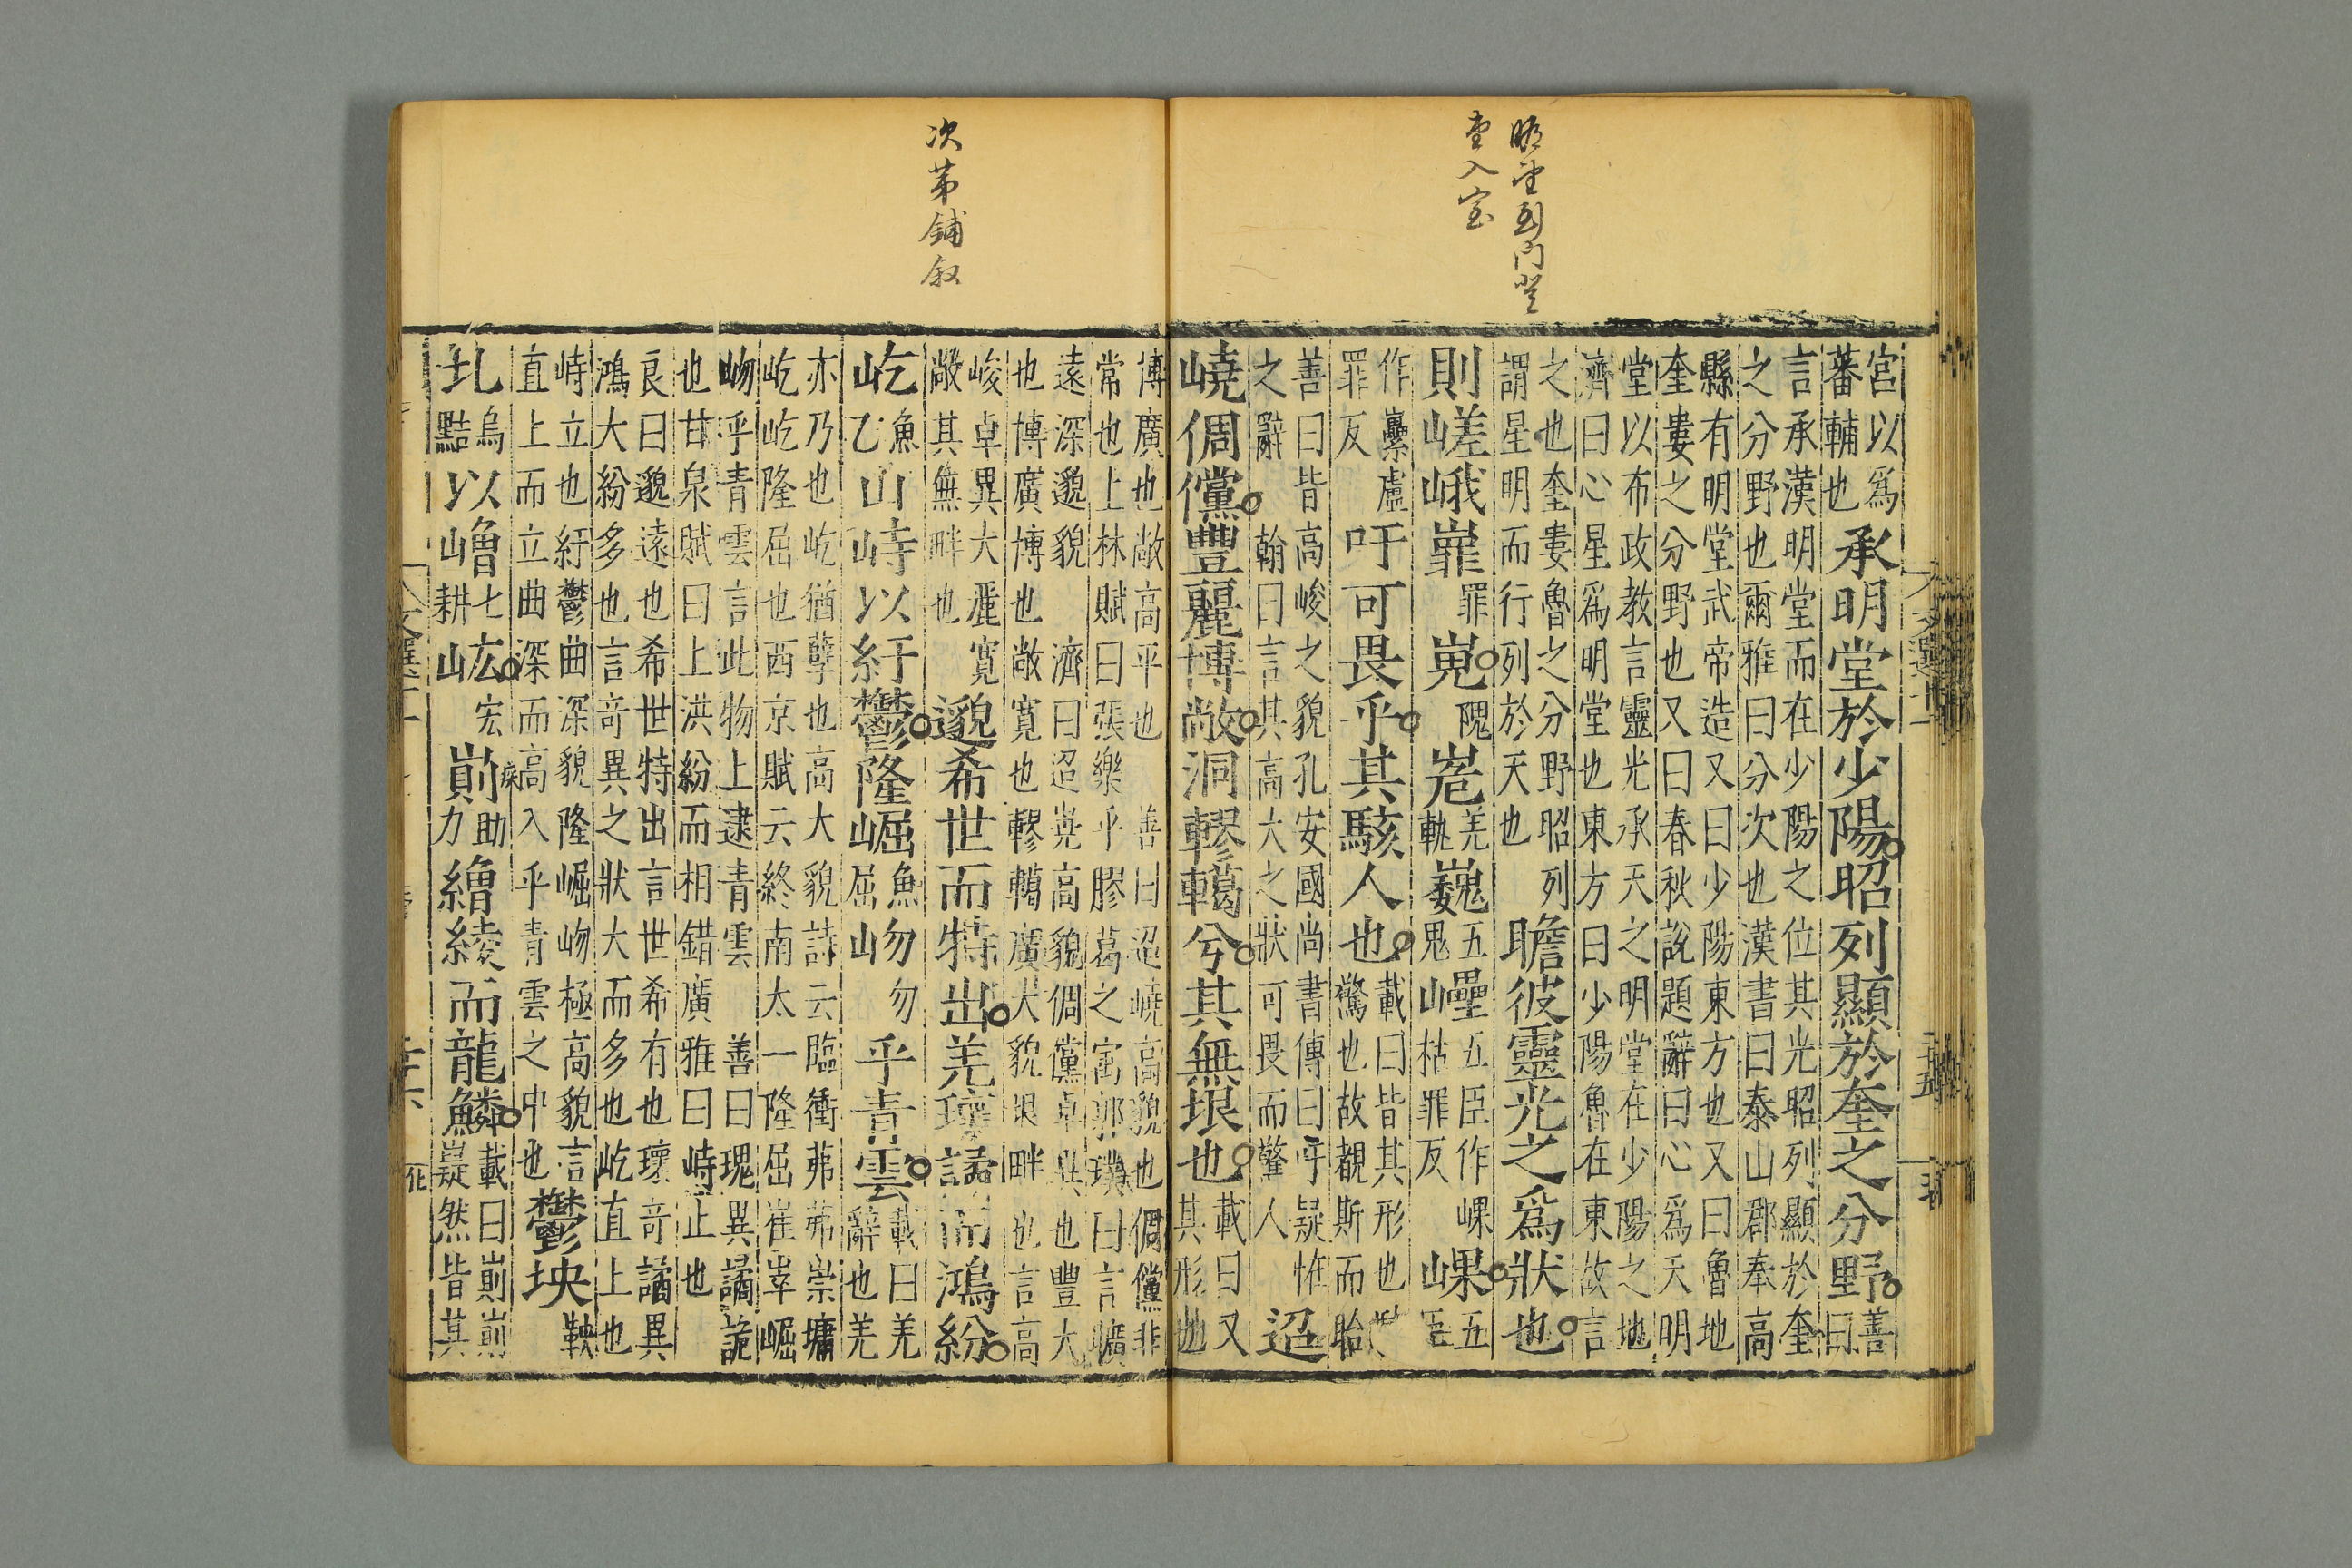 瞻望到門登
堂入室
宮以爲蕃輔也承明堂於少陽昭列顯於奎之分野善曰
言承漢明堂而在少陽之位其光昭列顯於奎
之分野也爾雅曰分次也漢書曰泰山郡奉高
縣有明堂武帝造又曰少陽東方也又曰魯地
奎婁之分野也又曰春秋說題辭曰心爲天明
堂以布政教言靈光承天之明堂在少陽之地
濟曰心星爲明堂也東方曰少陽魯在東故言
之也奎婁魯之分野昭列
謂星明而行列於天也瞻彼靈光之爲狀也
則嵯峨嶵罪嵬隗峞羌軌巍五鬼㠥五臣作㟅枯罪反㟅五臣
作纍盧罪反吁可畏乎其駭人也載曰皆其形也驚也故覩斯而眙
善曰皆高峻之貌孔安國尚書傳曰吁疑怪
之辭翰曰言其高大之狀可畏而驚人迢
嶢倜儻豐麗博敞洞轇轕兮其無垠也載曰又其形也
次第鋪敘
博廣也敞高平也善曰迢嶢高貌也倜儻非
常也上林賦曰張樂乎膠葛之寓郭璞曰言曠
遠深邈貌濟曰迢嶢高貌倜儻卓異也豐大
也博廣博也敞寬也轇轕廣大貌垠畔也言高
峻卓異大麗寬
敞其無畔也邈希世而特出羌瓌譎而鴻紛
屹魚乙山峙以紆鬱隆崛魚屈岉勿乎青雲載曰羌辭也羌
亦乃也屹猶孽也高大貌詩云臨衝茀茀崇墉
屹屹隆屈也西京賦云終南太一隆屈崔崒崛
岉乎青雲言此物上逮青雲善曰瑰異譎詭
也甘泉賦曰上洪紛而相錯廣雅曰峙止也
良曰邈遠也希世特出言世希有也瓌奇譎異
鴻大紛多也言奇異之狀大而多也屹直上也
峙立也紆鬱曲深貌隆崛岉極高貌言
直上而立曲深而高入乎青雲之中也鬱坱鞅
圠烏黠以嶒七耕峵宏崱助力繒綾而龍鱗載曰崱崱嶷然皆其